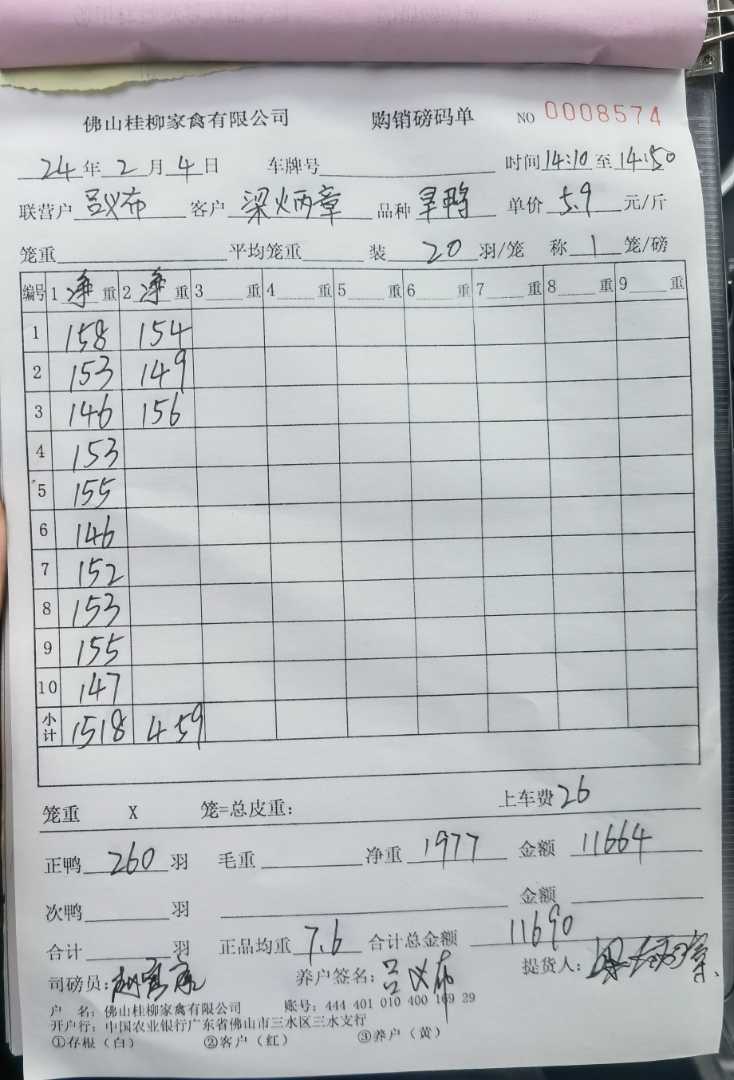 佛山桂柳家禽有限公司 购销磅码单 NO 0008574
24年2月4日 车牌号 时间14:10至14:50
联营户 吕义布 客户 梁火炳章 品种 旱鸭 单价 5.9 元/斤
笼重 平均笼重 装 20 羽/笼 称 1 笼/磅
编号 1 净 重 2 净 重 3 重 4 重 5 重 6 重 7 重 8 重 9 重
1 158 154
2 153 149
3 146 156
4 153
5 155
6 146
7 152
8 153
9 155
10 147
小计 1518 459
笼重 X 笼=总皮重: 上车费 26
正鸭 260 羽 毛重 净重 1977 金额 11664
次鸭 羽 金额
合计 羽 正品均重 7.6 合计总金额 11690
司磅员: 养户签名: 吕义布 提货人:
户 名: 佛山桂柳家禽有限公司 账号: 444 401 010 400 169 29
开户行: 中国农业银行广东省佛山市三水区三水支行
①存根(白) ②客户(红) ③养户(黄)